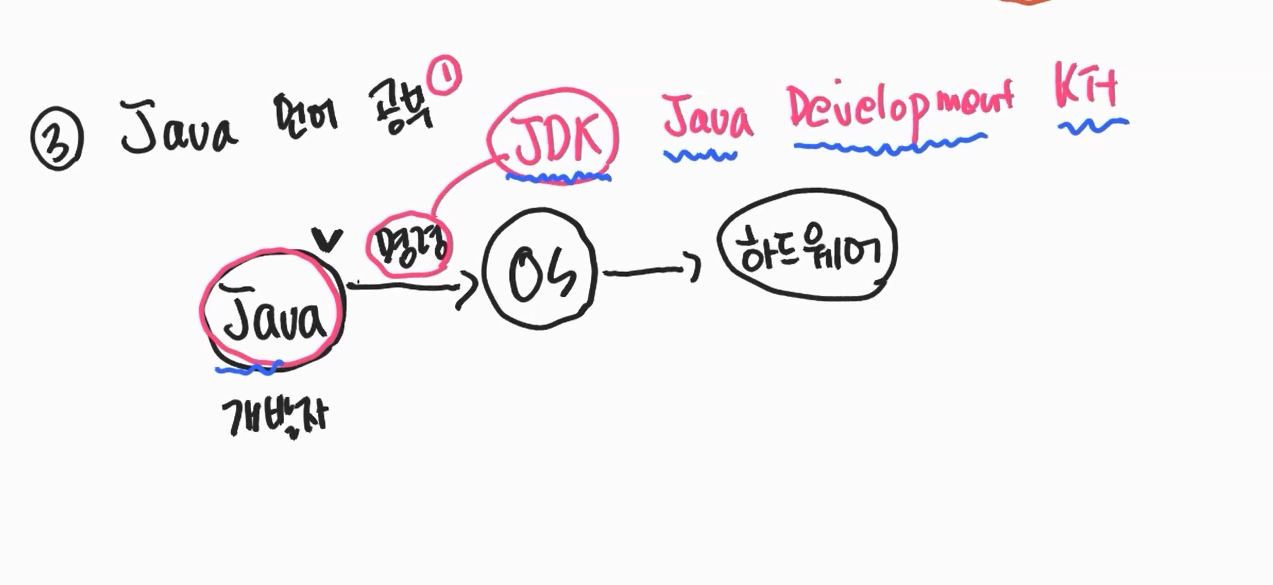 ③ Java 언어 공부 ①
JDK Java Development Kit
명령
Java OS 하드웨어
개발자